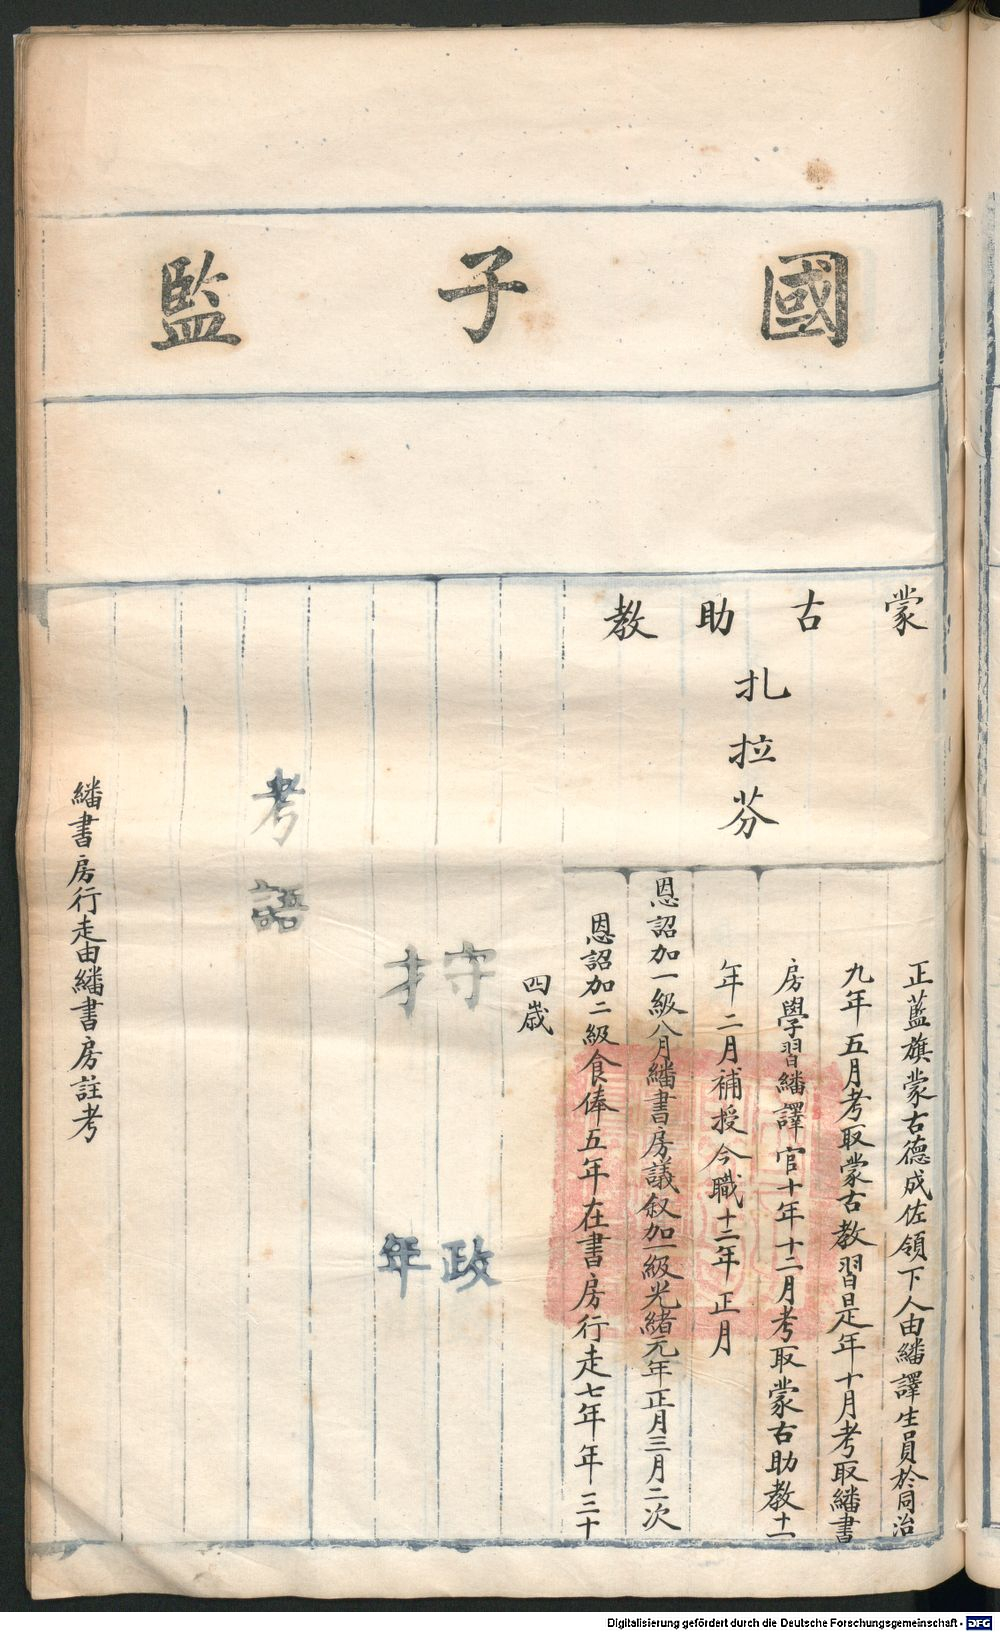 國子監
蒙古助教
扎拉芬
正藍旗蒙古德成佐領下人由繙譯生員於同治
九年五月考取蒙古教習是年十月考取繙書
房學習繙譯官十年十二月考取蒙古助教十一
年二月補授今職十二年正月
恩詔加一級八月繙書房議叙加一級光緒元年正月三月二次
恩詔加二級食俸五年在書房行走七年年三十
四歲
守 政
才 年
考語
繙書房行走由繙書房註考
Digitalisierung gefördert durch die Deutsche Forschungsgemeinschaft - DFG